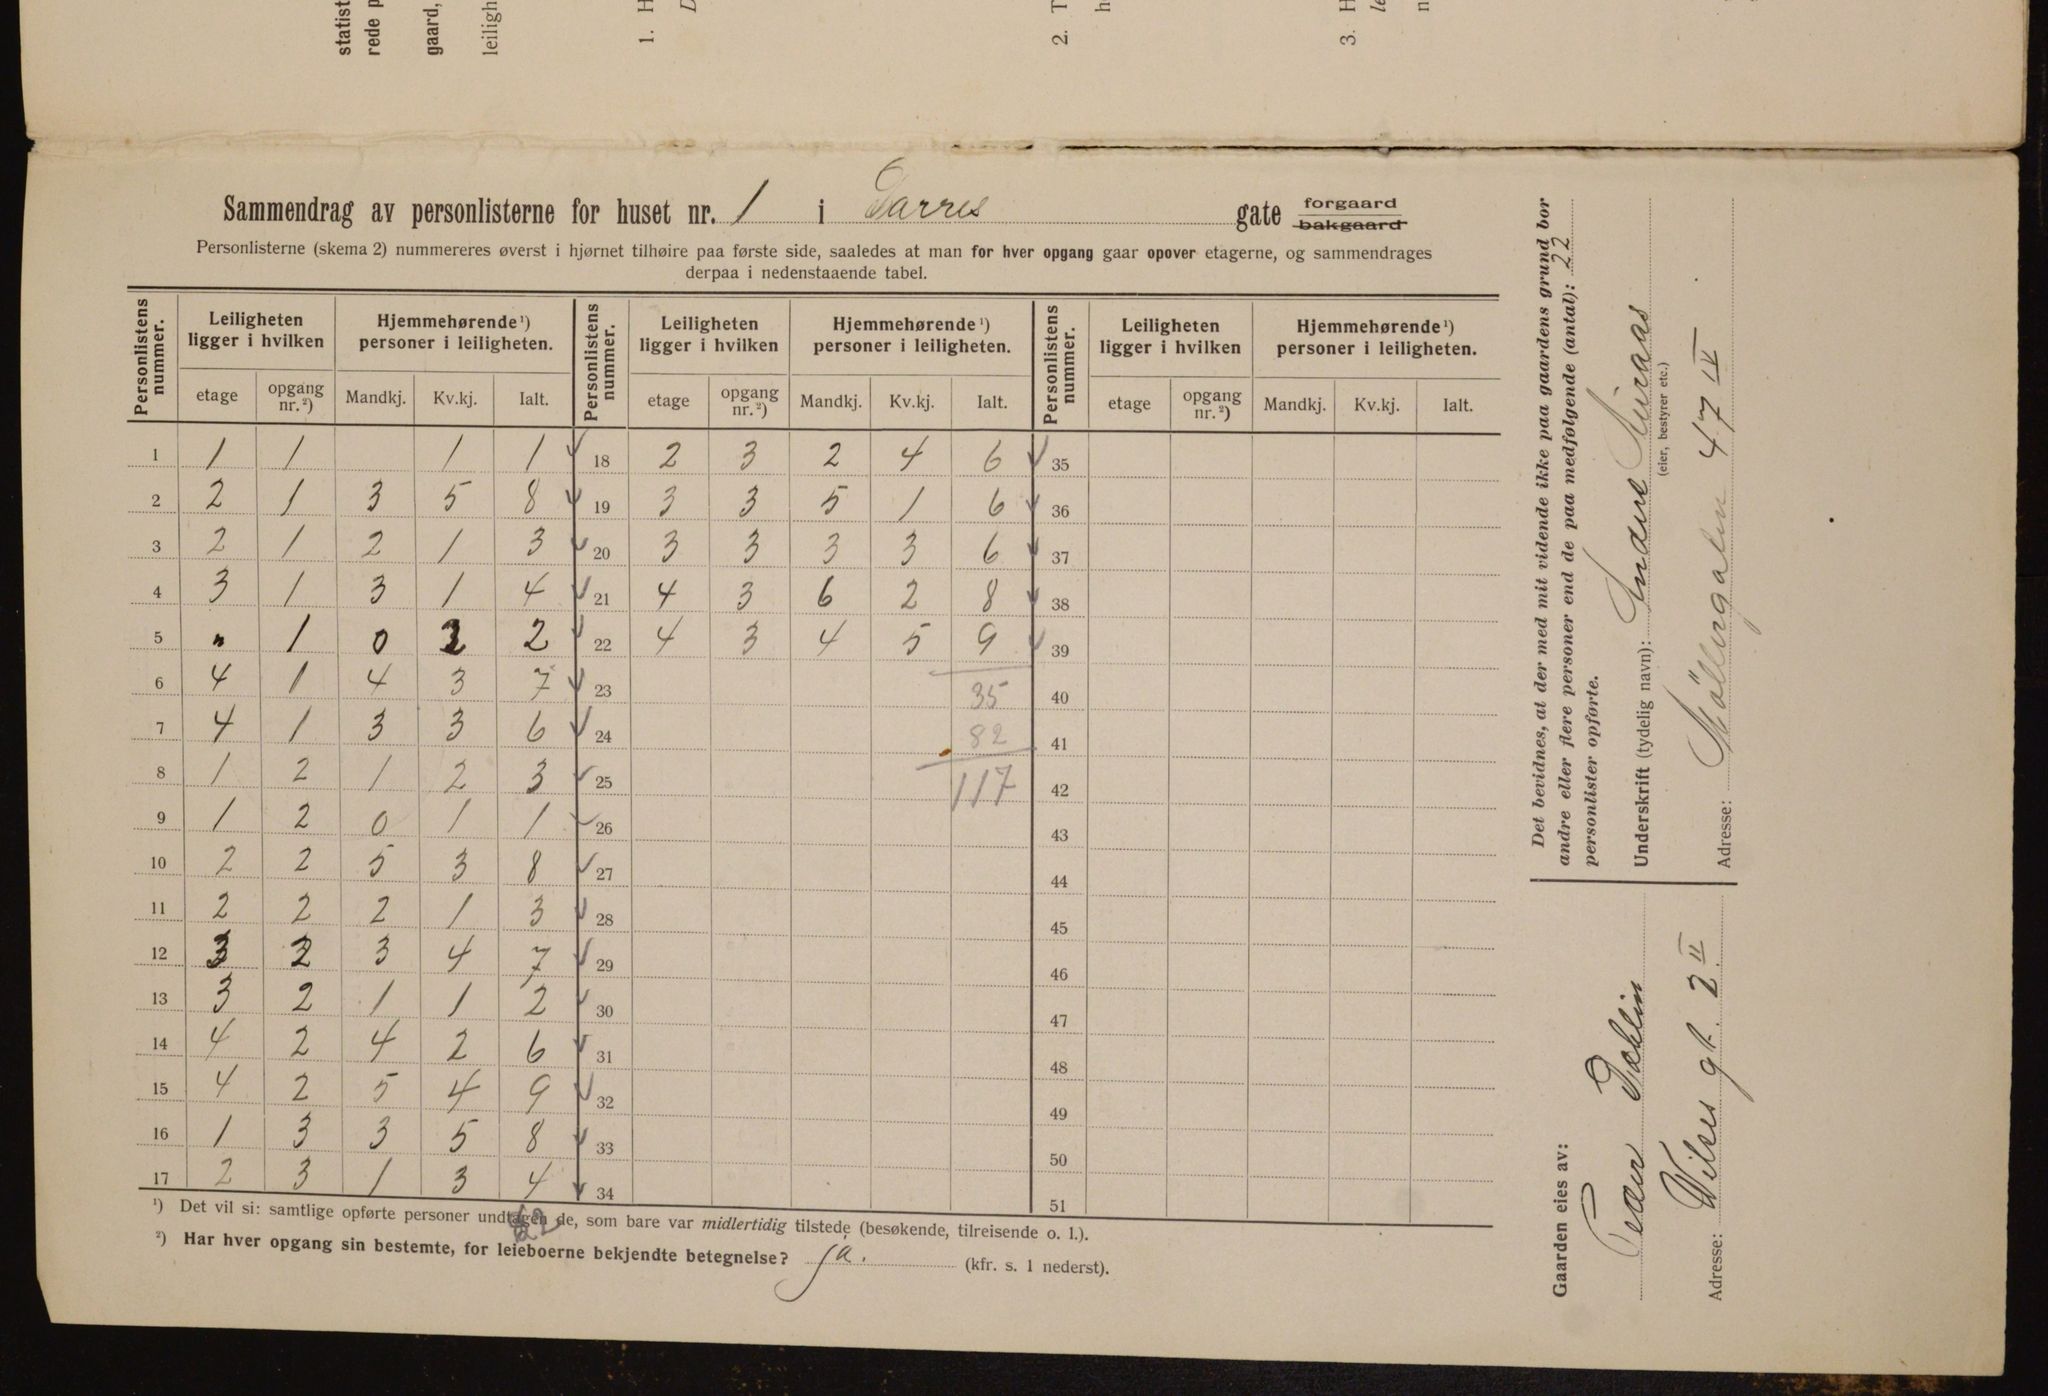 statist
rede p
gaard,
leiligh
1. H
D
2. T
h
3. H
le
n
Sammendrag av personlisterne for huset nr. 1 i Darres gate forgaard bakgaard
Personlisterne (skema 2) nummereres øverst i hjørnet tilhøire paa første side, saaledes at man for hver opgang gaar opover etagerne, og sammendrages
derpaa i nedenstaaende tabel.
Personlistens nummer. Leiligheten ligger i hvilken Hjemmehørende¹) personer i leiligheten. Personlistens nummer. Leiligheten ligger i hvilken Hjemmehørende¹) personer i leiligheten. Personlistens nummer. Leiligheten ligger i hvilken Hjemmehørende¹) personer i leiligheten.
etage opgang nr.²) Mandkj. Kv.kj. Ialt. etage opgang nr.²) Mandkj. Kv.kj. Ialt. etage opgang nr.²) Mandkj. Kv.kj. Ialt.
1 1 1 1 1 18 2 3 2 4 6 35
2 2 1 3 5 8 19 3 3 5 1 6 36
3 2 1 2 1 3 20 3 3 3 3 6 37
4 3 1 3 1 4 21 4 3 6 2 8 38
5 " 1 0 2 2 22 4 3 4 5 9 39
6 4 1 4 3 7 23 35 40
7 4 1 3 3 6 24 82 41
8 1 2 1 2 3 25 117 42
9 1 2 0 1 1 26 43
10 2 2 5 3 8 27 44
11 2 2 2 1 3 28 45
12 3 2 3 4 7 29 46
13 3 2 1 1 2 30 47
14 4 2 4 2 6 31 48
15 4 2 5 4 9 32 49
16 1 3 3 5 8 33 50
17 2 3 1 3 4 34 51
82
¹) Det vil si: samtlige opførte personer undtagen de, som bare var midlertidig tilstede (besøkende, tilreisende o. l.).
²) Har hver opgang sin bestemte, for leieboerne bekjendte betegnelse? ja. (kfr. s. 1 nederst).
Det bevidnes, at der med mit vidende ikke paa gaardens grund bor
andre eller flere personer end de paa medfølgende (antal): 22
personlister opførte.
Underskrift (tydelig navn):
(eier, bestyrer etc.)
Adresse: Möllergaten 47 IV
Gaarden eies av:
Peder Dahlin
Adresse: Wilses gt. 2 II